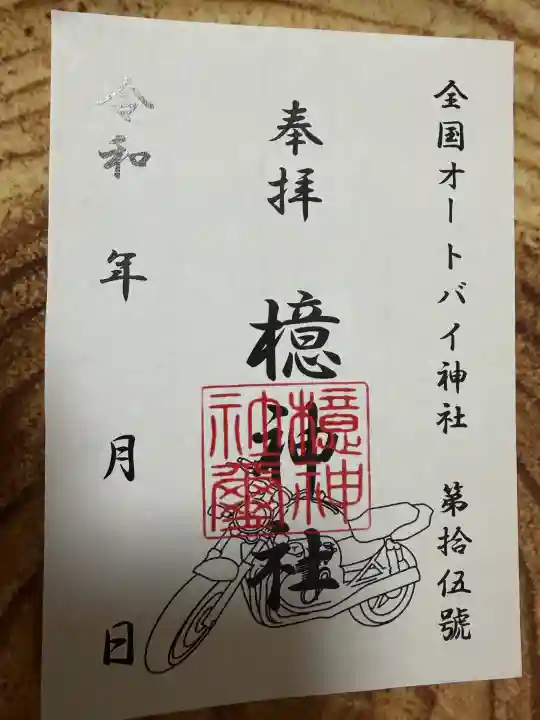 全国オートバイ神社 第拾伍號
奉拝
檍神社
檍神
社璽
令和 年 月 日